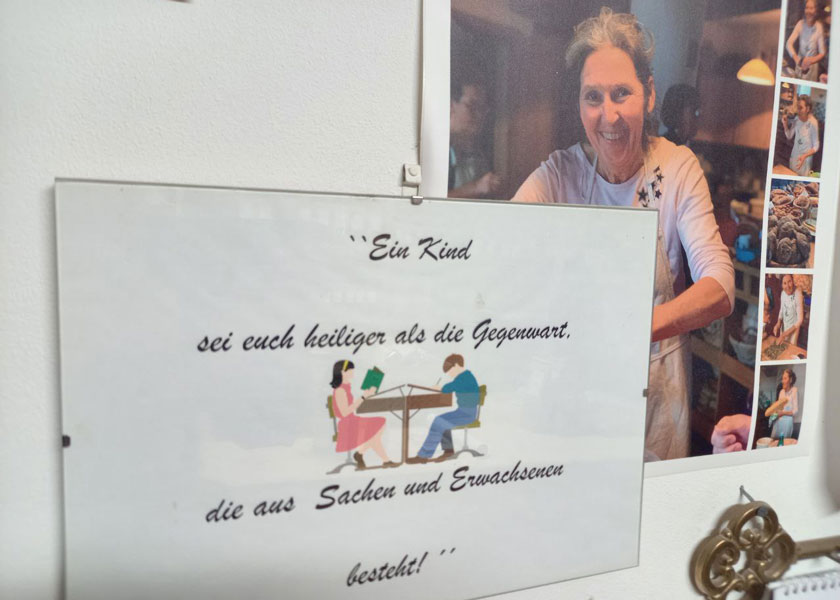 ``Ein Kind
sei euch heiliger als die Gegenwart,
die aus Sachen und Erwachsenen
besteht! ´´